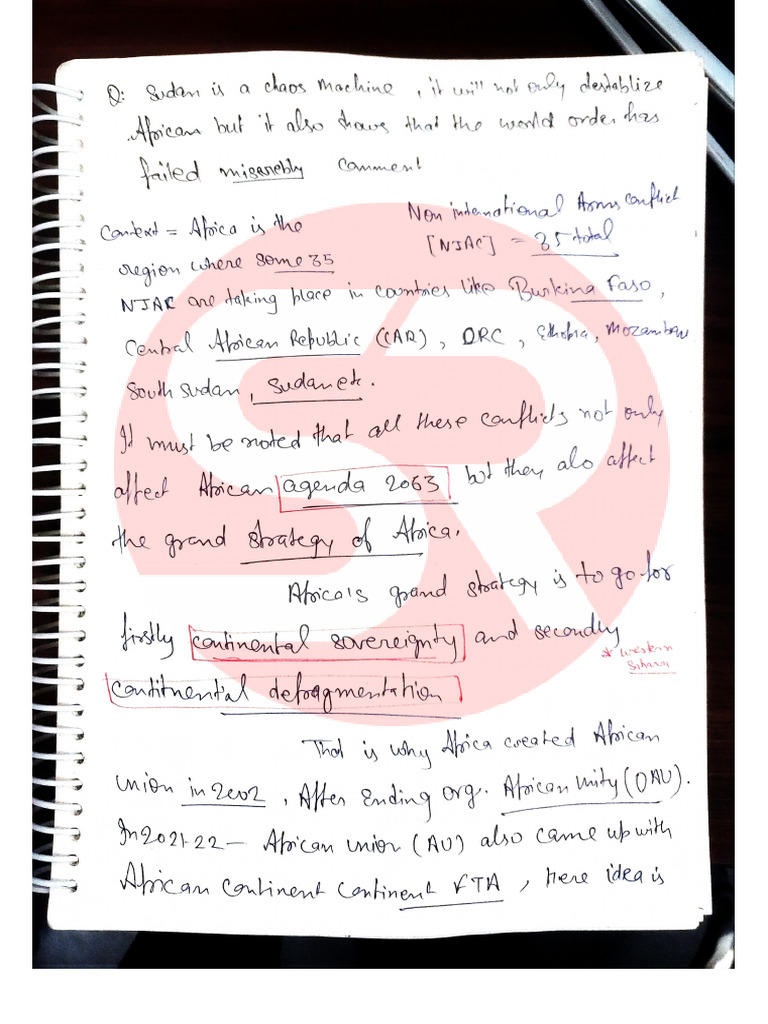 Q: Sudan is a chaos machine, it will not only destablize
African but it also shows that the world order has
failed miserebly comment
Context = Africa is the
region where some 35
Non international Arms conflict
[NIAC] = 35 total
NIAC are taking place in countries like Burkina Faso,
Central African Republic (CAR), DRC, Ethopia, Mozambw
South Sudan, Sudan etc.
It must be noted that all these conflicts not only
affect African agenda 2063 but they also affect
the grand strategy of Africa.
Africa's grand strategy is to go for
firstly continental sovereignty and secondly
* Western
Sahara
contitnential defragmentation
That is why Africa created African
union in 2002, After Ending org. African Unity (OAU).
In 2021-22 - African union (AU) also came up with
African continent continent FTA, here idea is
SR